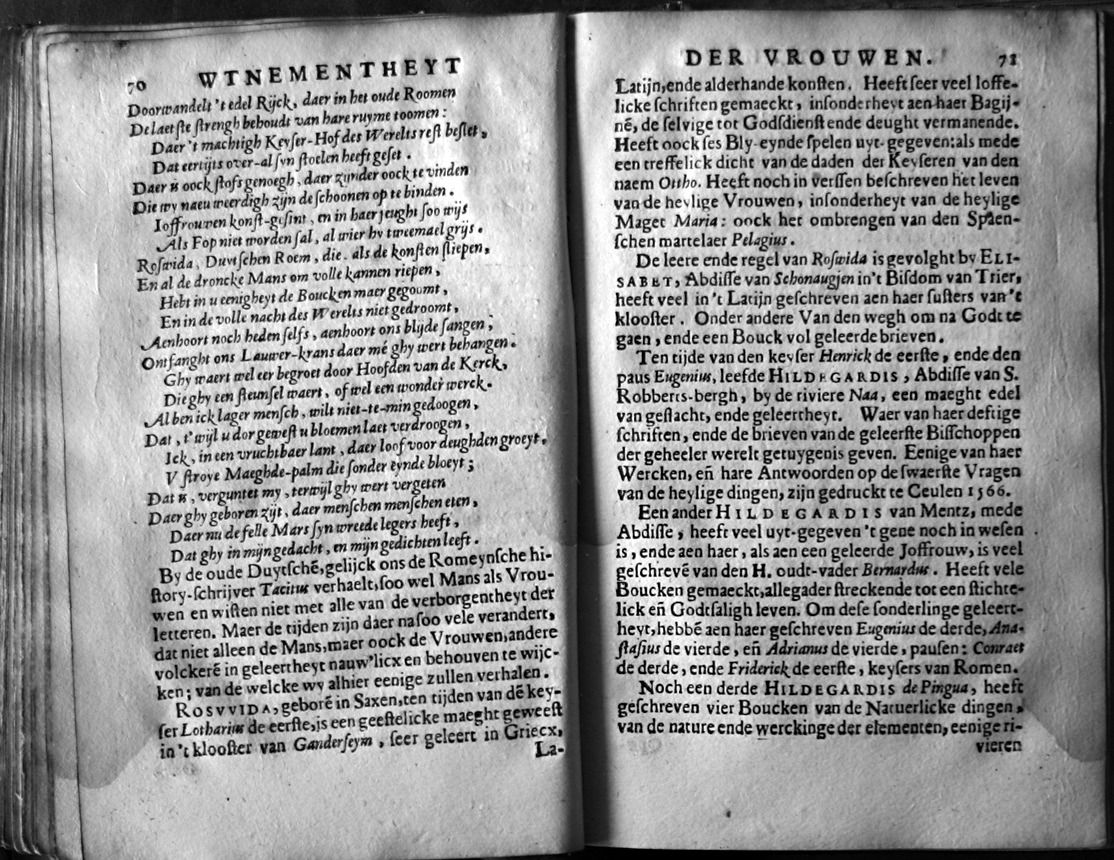 70 WTNEMENTHEYT
Doorwandelt 't edel Rijck, daer in het oude Roomen
De laetste strengh behoudt van hare ruyme toomen:
Daer 't machtigh Keyser-Hof des Werelts rest beslet,
Dat eertijts over-al syn stoelen heeft geset.
Daer is oock stofs genoegh, daer zijnder oock te vinden
Die wy naeu weerdigh zijn de schoonen op te binden.
Joffrouwen konst-gesint, en in haer jeught soo wijs
Als Fop niet worden sal, al wier hy tweemael grijs.
Roswida, Duytschen Roem, die, als de konsten sliepen,
En al de droncke Mans om volle kannen riepen,
Hebt in u eenigheyt de Boucken maer gegoumt,
En in de volle nacht des Werelts niet gedroomt,
Aenhoort noch heden selfs, aenhoort ons blijde sangen,
Ontfanght ons Lauwer-krans daer mé ghy wert behangen.
Ghy waert wel eer begroet door Hoofden van de Kerck,
Die ghy een steunsel waert, of wel een wonder werck.
Al ben ick lager mensch, wilt niet-te-min gedoogen,
Dat, t'wijl u dor gewest u bloemen laet verdroogen,
Ick, in een vruchtbaer lant, daer loof voor deughden groeyt,
V stroye Maeghde-palm die sonder eynde bloeyt;
Dat is, verguntet my, terwijl ghy wert vergeten
Daer ghy geboren zijt, daer menschen menschen eten,
Daer nu de felle Mars syn wreede legers heeft,
Dat ghy in mijn gedacht, en mijn gedichten leeft.
By de oude Duytsché, gelijck ons de Romeynsche hi-
story-schrijver Tacitus verhaelt, soo wel Mans als Vrou-
wen en wisten niet met alle van de verborgentheyt der
letteren. Maer de tijden zijn daer na soo vele verandert,
dat niet alleen de Mans, maer oock de Vrouwen, andere
volckeré in geleertheyt nauw'licx en behouven te wijc-
ken; van de welcke wy alhier eenige zullen verhalen.
ROSVVIDA, geboré in Saxen, ten tijden van dé key-
ser Lotharius de eerste, is een geestelicke maeght geweest
in 't klooster van Ganderseym, seer geleert in Griecx,
La-
DER VROUWEN. 71
Latijn, ende alderhande konsten. Heeft seer veel loffe-
licke schriften gemaeckt, insonderheyt aen haer Bagij-
né, de selvige tot Godsdienst ende deught vermanende.
Heeft oock ses Bly-eynde spelen uyt-gegeven: als mede
een treffelick dicht van de daden der Keyseren van den
naem Ottho. Heeft noch in verssen beschreven het leven
van de heylige Vrouwen, insonderheyt van de heylige
Maget Maria: oock het ombrengen van den Spaen-
schen martelaer Pelagius.
De leere ende regel van Roswida is gevolght by ELI-
SABET, Abdisse van Schonaugjen in't Bisdom van Trier,
heeft veel in 't Latijn geschreven aen haer susters van 't
klooster. Onder andere Van den wegh om na Godt te
gaen, ende een Bouck vol geleerde brieven.
Ten tijde van den keyser Henrick de eerste, ende den
paus Eugenius, leefde HILDEGARDIS, Abdisse van S.
Robberts-bergh, by de riviere Naa, een maeght edel
van geslacht, ende geleertheyt. Waer van haer deftige
schriften, ende de brieven van de geleerste Bisschoppen
der geheeler werelt getuygenis geven. Eenige van haer
Wercken, eñ hare Antwoorden op de swaerste Vragen
van de heylige dingen, zijn gedruckt te Ceulen 1566.
Een ander HILDEGARDIS van Mentz, mede
Abdisse, heeft veel uyt-gegeven 't gene noch in wesen
is, ende aen haer, als aen een geleerde Joffrouw, is veel
geschrevé van den H. oudt-vader Bernardus. Heeft vele
Boucken gemaeckt, allegader streckende tot een stichte-
lick eñ Godtsaligh leven. Om dese sonderlinge geleert-
heyt, hebbé aen haer geschreven Eugenius de derde, Ana-
stasius de vierde, eñ Adrianus de vierde, pausen: Conraet
de derde, ende Friderick de eerste, keysers van Romen.
Noch een derde HILDEGARDIS de Pingua, heeft
geschreven vier Boucken van de Natuerlicke dingen,
van de nature ende werckinge der elementen, eenige ri-
vieren